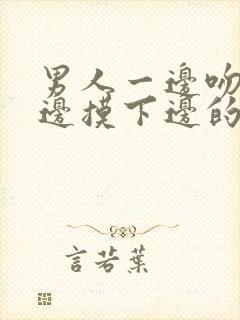 男人一邊吻
邊摸下邊的
言若葉